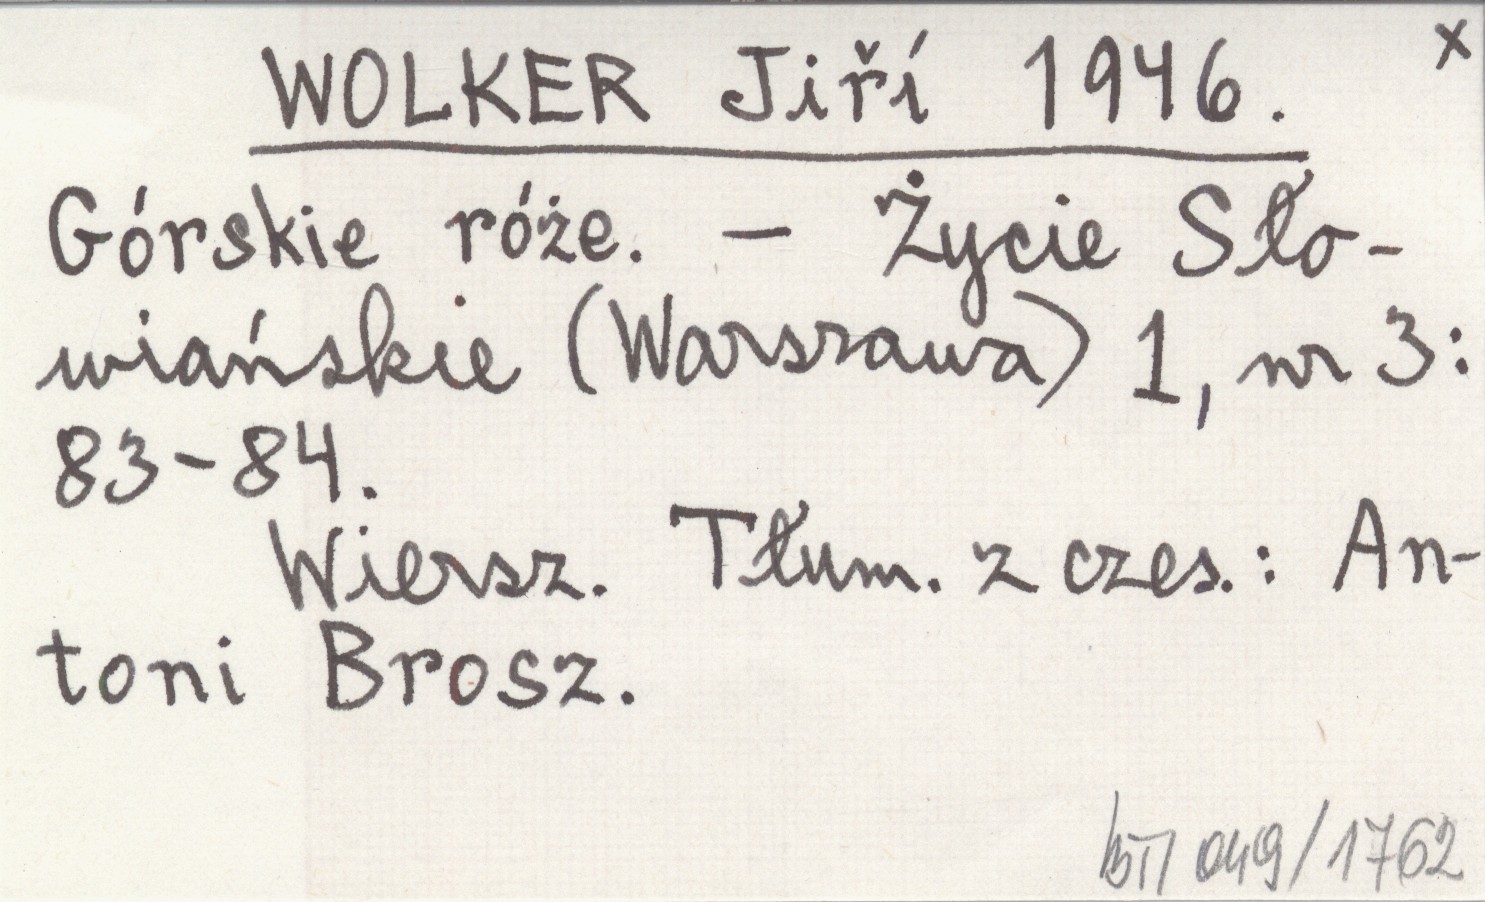 x
WOLKER Jiří 1946.
Górskie róże. – Życie Sło-
wiańskie (Warszawa) 1, nr 3:
83-84.
Wiersz. Tłum. z czes.: An-
toni Brosz.
049/1762